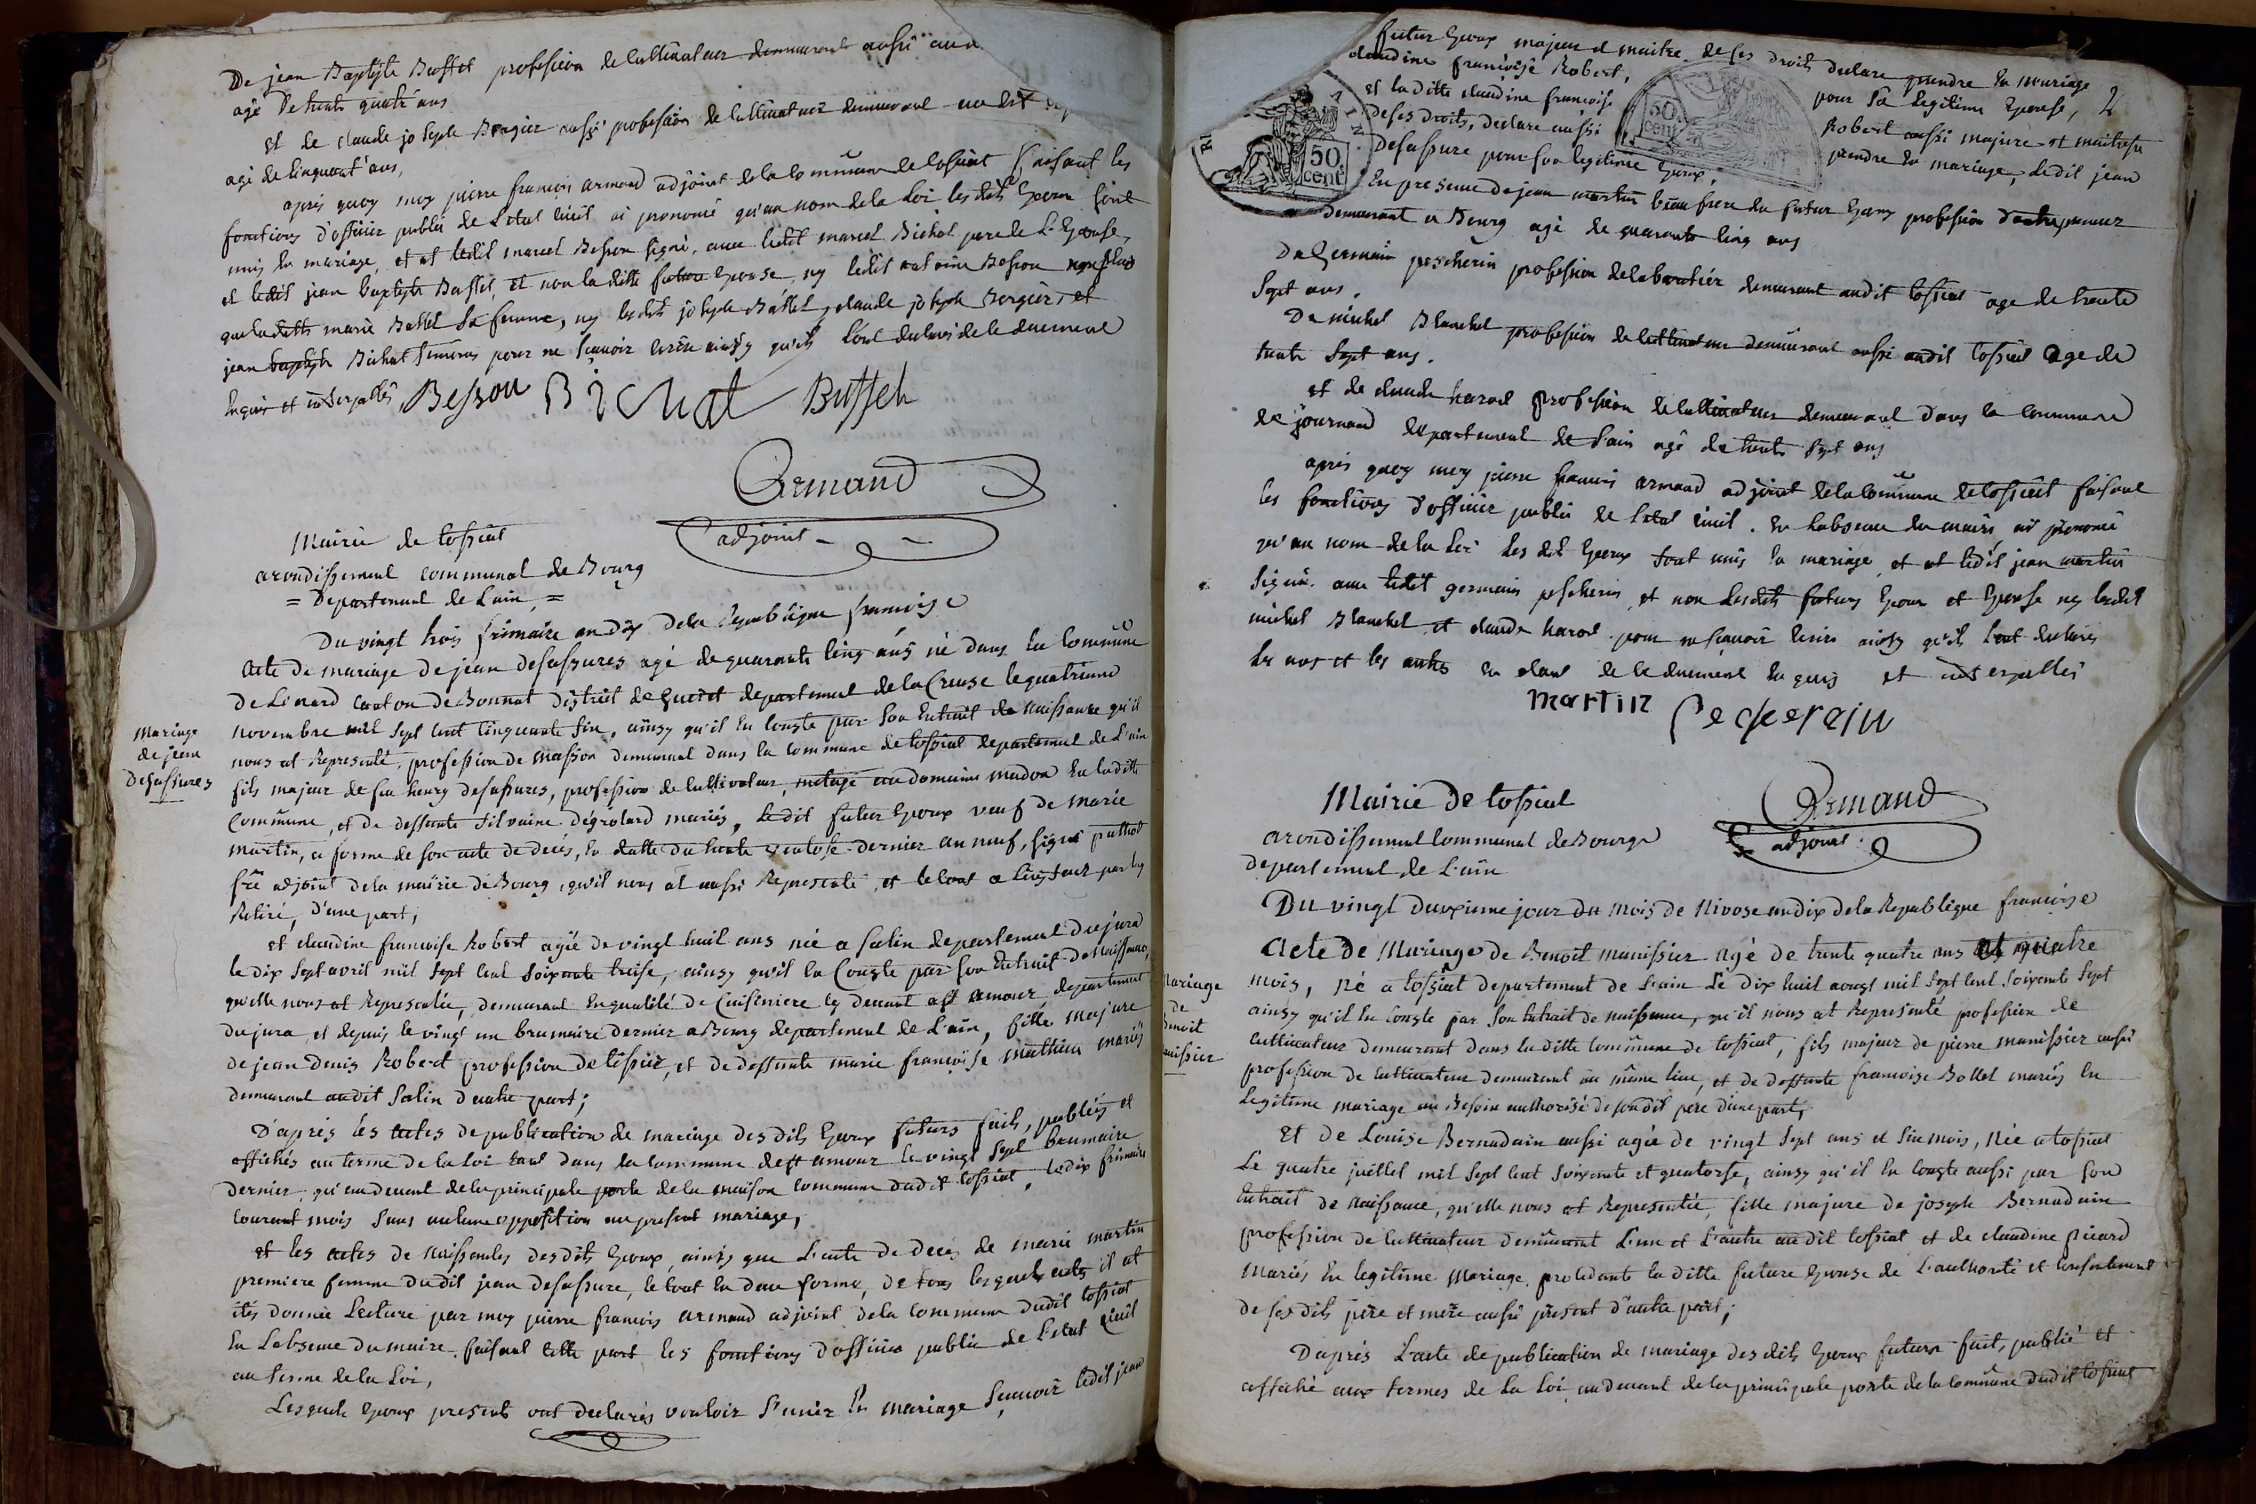 De jean Baptiste Buffet profession de Cultivateur demeurant aussi
agé de trente quatre ans
et de claude joseph Bergier aussi profession de Cultivateur demeurant audit
agé de Cinquant'ans,
après quoy moy pierre françois armand adjoint de la Commune de tossiat faisant les
fonctions d'officier public de L'etat Civil ai prononcé qu'au nom de la Loi les dits Epoux sont
unis En mariage, et at ledit marcel Besson signé, avec ledit marcel Bichat pere de L'Epouse,
et ledit jean baptiste Buffet, et non la ditte future Epouse, ny ledit antoine Besson non plus
que ladite marie Battet Sa femme, ny lesdits joseph Battet, claude joseph Bergier, et
jean baptiste Bichat temoins pour ne Sçavoir Ecrire ainsy qu'ils L'ont declarés de ce duement
Enquis et interpellés Besson Bichat Buffet
Armand
adjoint
Mairie de tossiat
arondissement communal de Bourg
= Departement de L'ain =
Du vingt trois frimaire an dix de la Republique françoise
Acte de mariage de jean desassures agé de quarante Cinq ans né dans la Commune
de Linard Canton de Bonnat district de Gueret departement de la Creuse le quatrieme
novembre mil Sept Cent Cinquante Six, ainsy qu'il En Conste par Son Extrait de Naissance qu'il
nous at Representé, profession de masson demeurant dans la Commune de tossiat departement de L'ain
fils majeur de feu henry desassures, profession de Cultivateur, au domaine madon En ladite
Commune, et de deffunte Silvaine degrolard mariés, Ledit futur Epoux veuf de marie
martin, a forme de son acte de decés, En datte du trente ventose dernier an neuf, signé
adjoint de la mairie de Bourg, qu'il nous at aussi Representé, et le tout a L'instant par luy
Retiré, d'une part,
et claudine francoise Robert agée de vingt huit ans née a Salin departement du jura
le dix Sept avril mil Sept Cent Soixante treise, ainsy qu'il En Conste par Son Extrait de Naissance,
qu'elle nous at Representée, demeurant En qualité de Cuisiniere Cy devant a St amour departement
du jura, et depuis le vingt un brumaire dernier a Bourg departement de L'ain, fille majeure
de jean denis Robert profession de tissier, et de deffunte marie françoise mathieu mariés
demeurant audit Salin d'autre part;
D'aprés les Actes de publication de mariage des dits Epoux futurs faits, publiés et
affichés au terme de la Loi tant dans la Commune de St amour le vingt Sept brumaire
dernier, qu'au devant de la principale porte de la maison Commune dudit tossiat, le dix frimaire
courant mois Sans aucune opposition au present mariage,
et les actes de Naissances desdits Epoux, ainsy que L'acte de decés de marie martin
premiere femme dudit jean desassure, le tout En due forme, de tous lesquels actes il at
étés donnée Lecture par moy pierre francois armand adjoint de la Commune dudit tossiat
En L'absence du maire, faisant cette part les fonctions d'officier public de L'etat Civil
au terme de la Loi,
Lesquels Epoux presents ont declarés vouloir S'unir En mariage Sçavoir ledit jean
Mariage
de jean
Desassures
futur Epoux majeur et maitre de ses Droits declare prendre En mariage
claudine françoise Robert, pour Sa Legitime Epouse,
et la ditte claudine françoise Robert aussi majeure et maitresse
de ses Droits, declare aussi prendre En mariage, ledit jean
Desassure pour son legitime Epoux,
50. cent
50 cent
En presence de jean martin beau frere du futur Epoux profession d'entrepreneur
demeurant a Bourg agé de quarante Cinq ans
De Germain pescherin profession de Cabaratiér demeurant audit tossiat age de trente
Sept ans,
De michel Blanchet profession de Cultivateur demeurant aussi audit tossiat age de
trente Sept ans.
et de claude profession de Cultivateur demeurant dans la Commune
de journand departement de L'ain agé de trente Sept ans
aprés quoy moy pierre francois armand adjoint de la Commune de tossiat faisant
les fonctions d'officier public de L'etat Civil. En L'absence du maire, ai prononcé
qu'au nom de la Loi Les dits Epoux Sont unis En mariage, et at ledit jean martin
Signé. avec ledit germain pescherin, et non Lesdits futurs Epoux et Epouse ny ledit
michel Blanchet et claude pour ne sçavoir Ecrire ainsy qu'ils L'ont declarés
Les uns et les autres de ce duement Enquis et interpellés
martin Pecherein
Armand
adjoint
Mairie de tossiat
arondissement Communal de Bourg
departement de L'ain
Du vingt deuxieme jour du Mois de Nivose an dix de la Republique françoise
Acte de Mariage de Benoit manissier agé de trente quatre ans et quatre
mois, né a tossiat departement de L'ain Le dix huit aoust mil Sept Cent Soixante Sept
ainsy qu'il En Conste par Son Extrait de naissance, qu'il nous at Representé profession de
Cultivateur demeurant dans la ditte Commune de tossiat, fils majeur de pierre manissier aussi
profession de Cultivateur demeurant au même lieu, et de deffunte francoise Bollet mariés En
Legitime mariage au Besoin authorisé de son dit pere d'une part,
Et de Louise Bernadain aussi agée de vingt Sept ans et Six mois, Née a tossiat
Le quatre juillet mil Sept Cent Soixante et quatorse, ainsy qu'il En Conste aussi par Son
Extrait de Naissance, qu'elle nous at Representée, fille majeure de joseph Bernadain
profession de Cultivateur demeurant L'un et L'autre audit tossiat et de claudine picard
Mariés En legitime Mariage, procedante la ditte future Epouse de L'authorité et Consentement
de ses dits pere et mere aussi present d'autre part;
D'aprés L'acte de publication de mariage des dits Epoux futurs fait, publié et
affiché aux termes de La Loi au devant de la principale porte de la Commune dudit tossiat
Mariage
de
Benoit
manissier